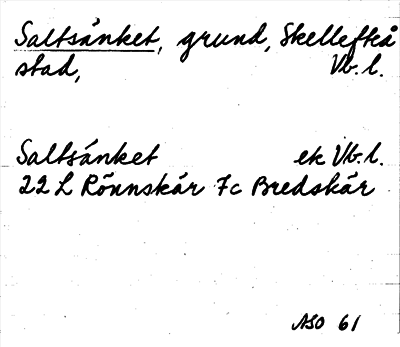 Saltsänket, grund, Skellefteå
stad, Vb. l.
Saltsänket ek Vb. l.
22 L Rönnskär 7c Bredskär
ASO 61